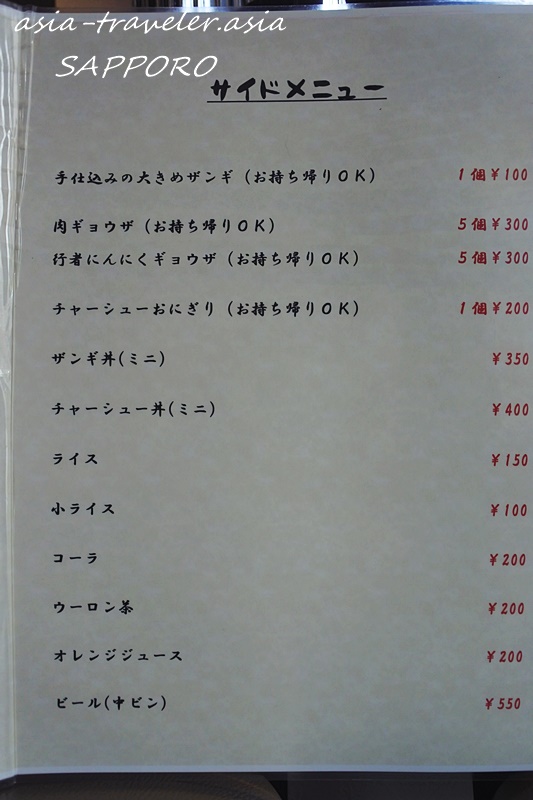 asia-traveler.asia
SAPPORO
サイドメニュー
手仕込みの大きめザンギ (お持ち帰りOK) 1個¥100
肉ギョウザ (お持ち帰りOK) 5個¥300
行者にんにくギョウザ (お持ち帰りOK) 5個¥300
チャーシューおにぎり (お持ち帰りOK) 1個¥200
ザンギ丼(ミニ) ¥350
チャーシュー丼(ミニ) ¥400
ライス ¥150
小ライス ¥100
コーラ ¥200
ウーロン茶 ¥200
オレンジジュース ¥200
ビール(中ビン) ¥550